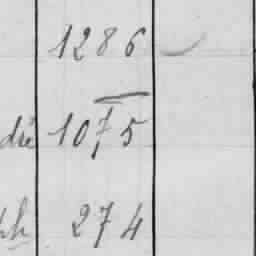 1286
dié 1075
ph 274